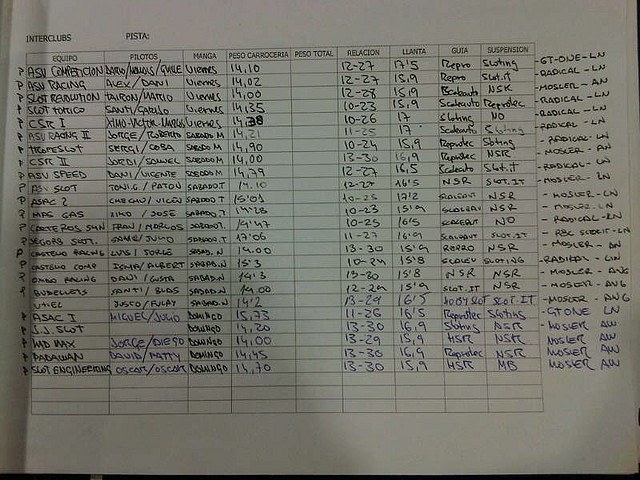 INTERCLUBS PISTA:
EQUIPO PILOTOS MANGA PESO CARROCERIA PESO TOTAL RELACION LLANTA GUIA SUSPENSION
P ASV COMPETICION Viernes 14,10 12-27 17'5 Repro Sloting - GT-ONE - LN
P ASV RACING ALEX / DANI Viernes 14,02 12-27 15,9 Repro Slot.it - RADICAL - LN
P SLOT REVOLUTION Viernes 14,00 12-28 15,9 NSR - MOSLER - AN
P Viernes 14,35 10-23 15,9 Scaleauto Reprotec - RADICAL - LN
P CSTR I Viernes 10-26 17 Sloting NO - RADICAL - LN
P ASV RACING II JORGE / ROBERTO SABADO M 14,21 11-25 17 Scaleauto Sloting - RADICAL - LN
P SERGI / COBA SABADO M 14,90 10-24 15,9 Reprotec Sloting - RADICAL - LN
P CSTR II SABADO M 14,00 13-30 16,9 Reprotec NSR - MOSLER - AN
P ASV SPEED DANI / VICENTE SABADO M 14,79 12-27 16,5 Scaleauto Slot.it - RADICAL - LN
P ASV SLOT TONI.G / PATON SABADO T 14.10 12-27 16'5 NSR SLOT.IT - MOSLER - LN
P ASAC 2 SABADO T 15'01 10-25 17'2 NSR - MOSLER - LN
P MPS GAS XIMO / JOSE SABADO T 14'28 10-23 15'9 NSR - MOSLER - LN
P FRAN / MARCOS SABADO T 14'47 10-25 16'5 NO - RADICAL - LN
P SABADO T 17'06 11-27 16'9 SLOT.IT
P CASTELLO RACING LUIS / JORGE SABAD.N 14.00 13-30 15'9 REPRO NSR - MOSLER - AN
P CASTELLO COMP / ALBERT SABAD.N 15'3 10-24 15'8 SLOTING - RADIKAL - LN
P RACING DANI / SABAD.N 14'3 13-30 15'8 NSR NSR - MOSLER - ANG
P SANTI / BLAS SABAD.N 14.00 12-29 15'9 SLOT.IT NSR - MOSLER - ANG
UTIEL SABAD.N 14'2 13-29 16'5 SLOT.IT - MOSLER - ANG
P ASAC I MIGUEL / JULIO DOMINGO 15,73 11-26 16'5 Reprotec Sloting - GT ONE LN
P S.J. SLOT DOMINGO 14,20 13-30 16,9 Sloting NSR - MOSLER AN
P MAX JORGE / DIEGO DOMINGO 14,00 13-29 15,9 NSR NSR MOSLER AN
P PADAWAN DAVID / DOMINGO 14,45 13-30 16,9 Reprotec NSR MOSLER AN
P SLOT ENGINEERING OSCAR / OSCAR DOMINGO 14,70 13-30 15,9 NSR MB MOSLER AN